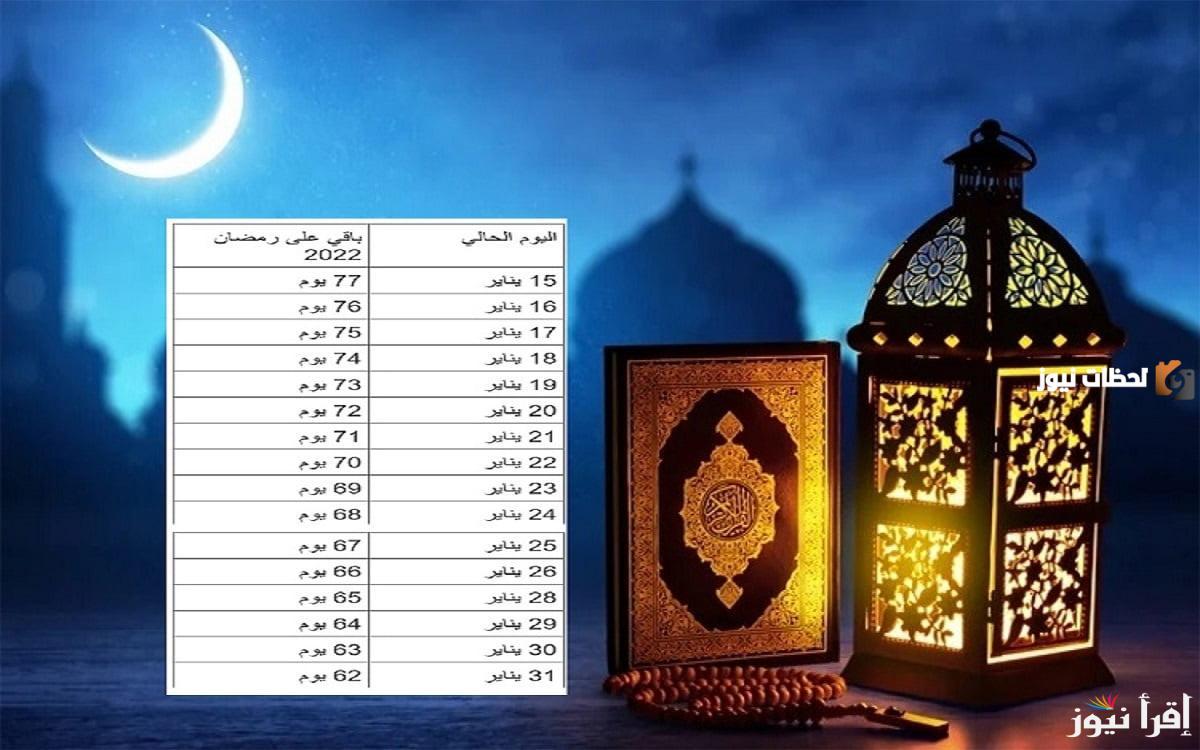 اليوم الحالي باقي على رمضان
2022
15 يناير 77 يوم
16 يناير 76 يوم
17 يناير 75 يوم
18 يناير 74 يوم
19 يناير 73 يوم
20 يناير 72 يوم
21 يناير 71 يوم
22 يناير 70 يوم
23 يناير 69 يوم
24 يناير 68 يوم
25 يناير 67 يوم
26 يناير 66 يوم
28 يناير 65 يوم
29 يناير 64 يوم
30 يناير 63 يوم
31 يناير 62 يوم
لحظات نيوز
إقرأ نيوز